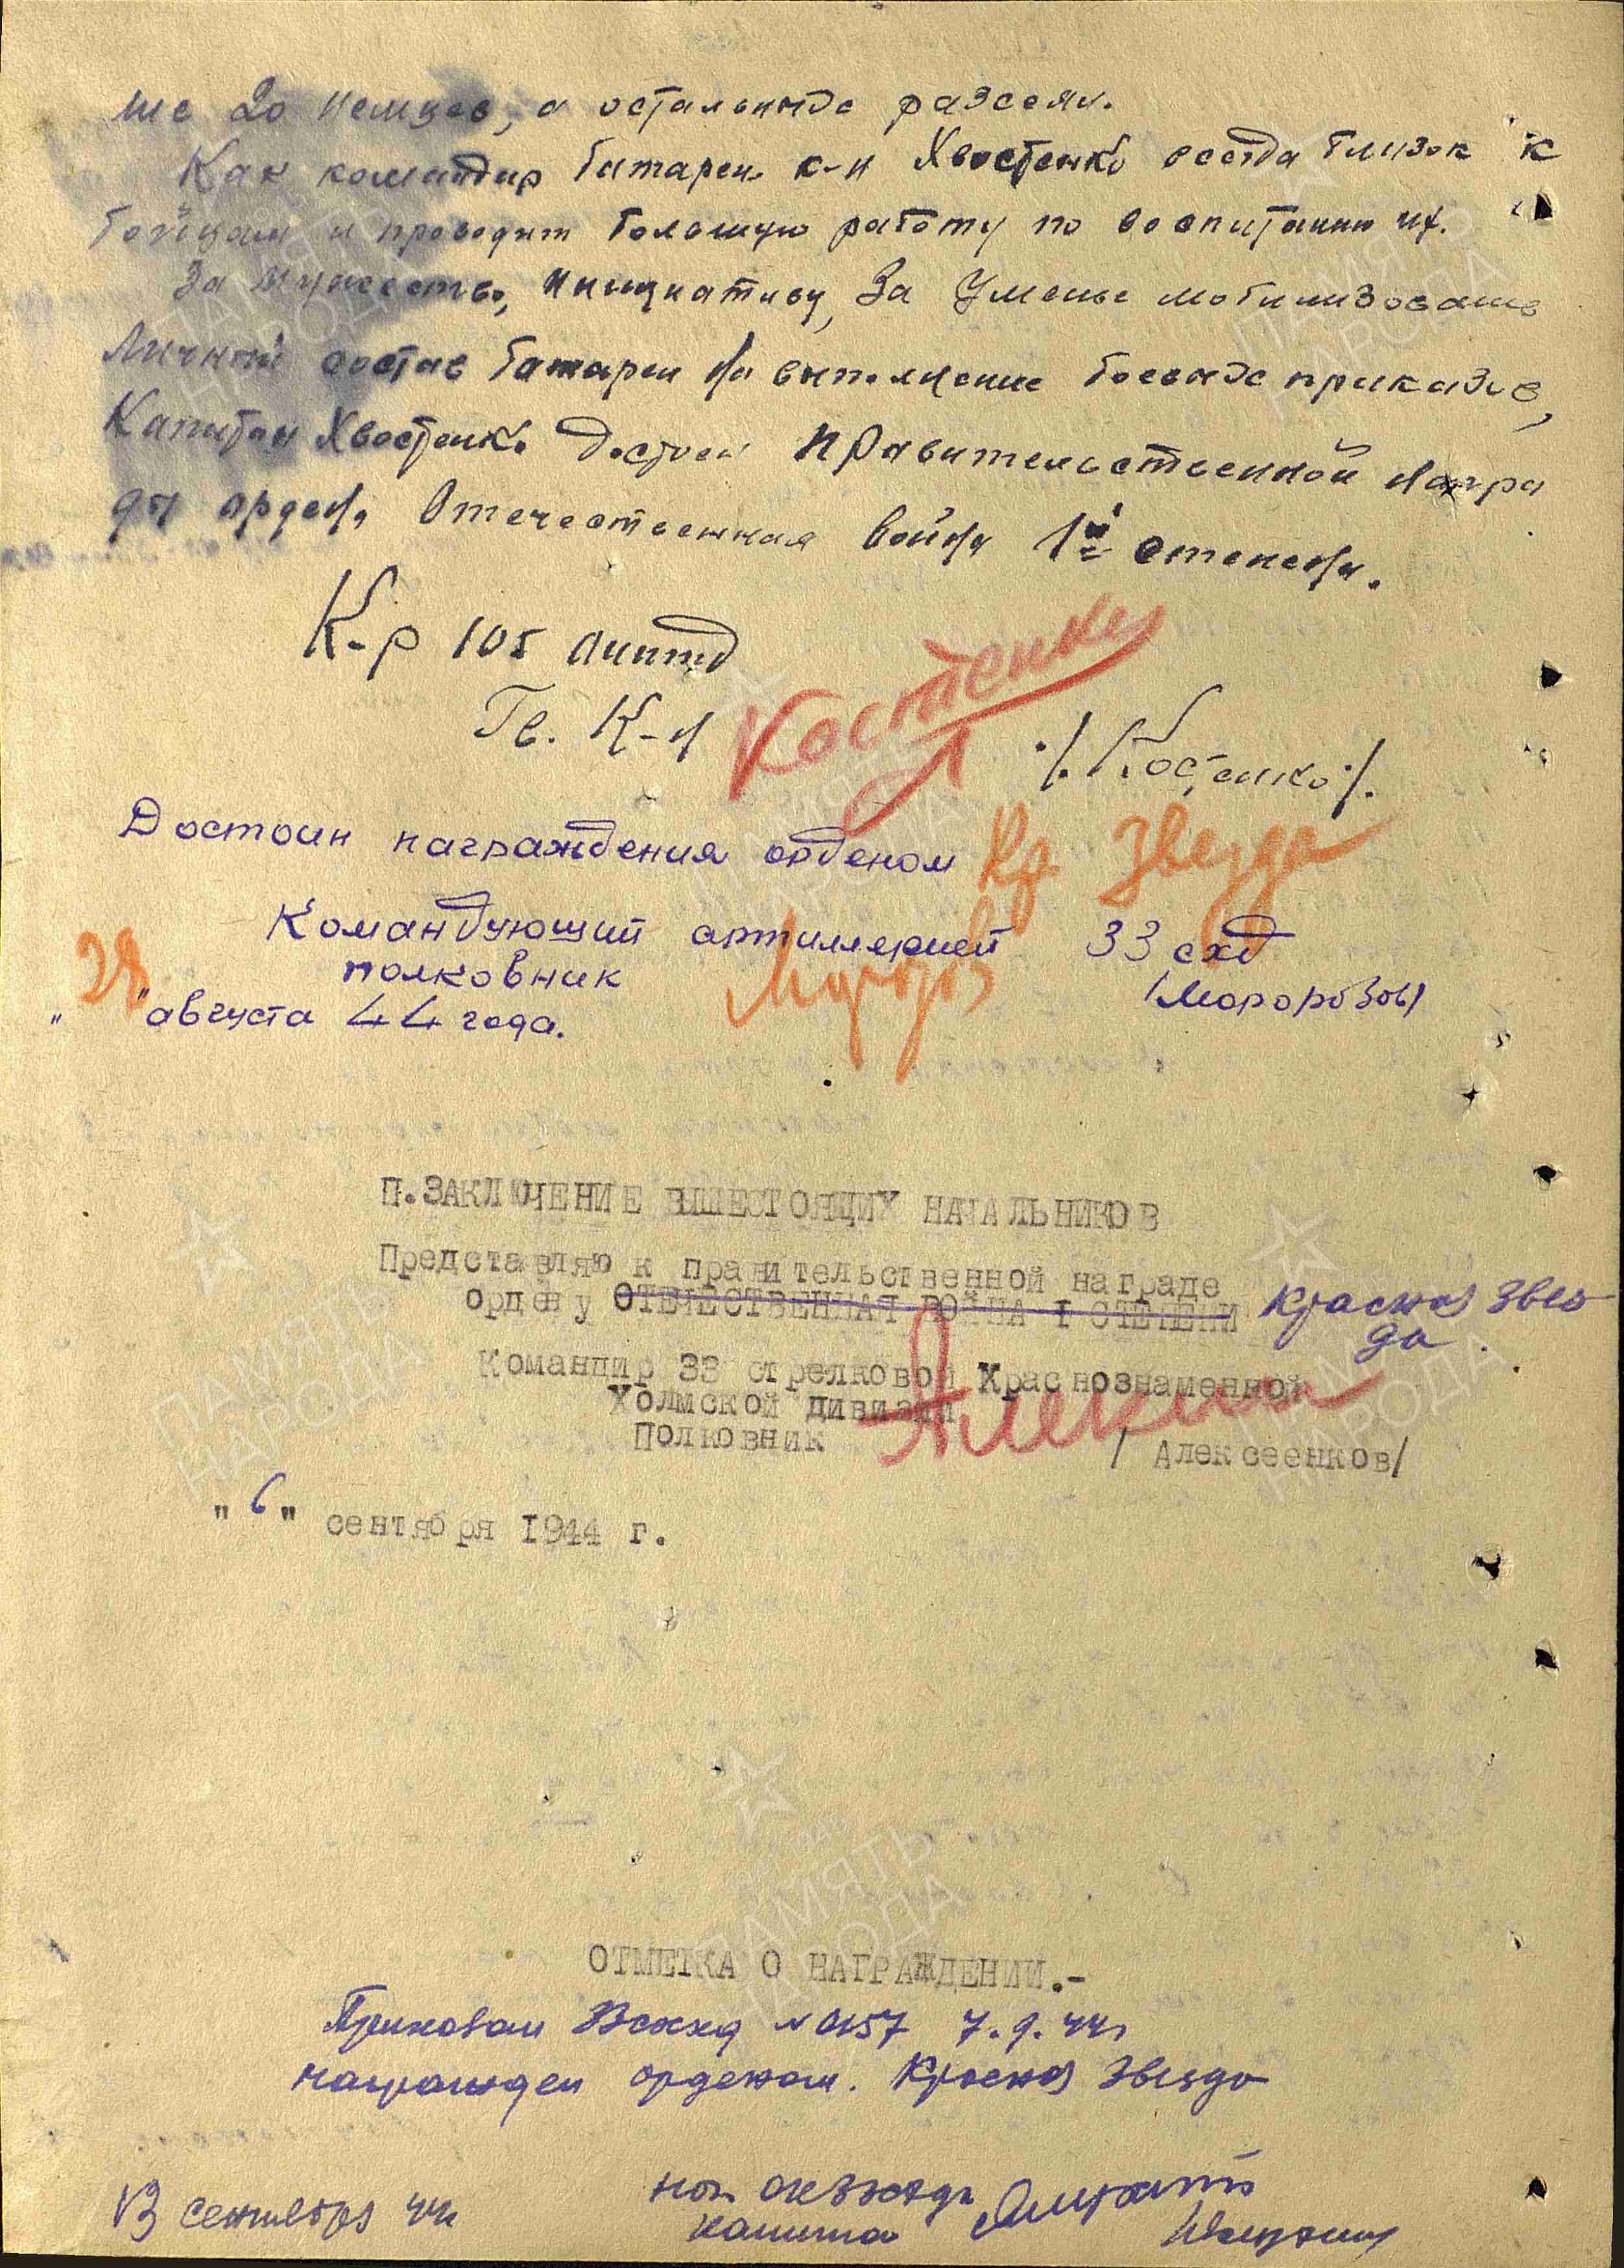 ше 20 немцев, а остальных разсеял.
Как командир батареи к-н Хвостенко всегда близок к
бойцам и проводит большую работу по воспитанию их.
За мужество, инициативу, За уменье мобилизовать
личный состав батареи на выполнение боевых приказов,
Капитан Хвостенко достоен правительственной награ
ды ордена Отечественная война 1й степени.
К-р 105 оиптд
Гв. К-н Костенко /. Костенко ./.
Достоин награждения орденом Кр. Звезда
Командующий артиллерией 33 схд
полковник Морозов /Моророзов/
"28" августа 44 года.
П.ЗАКЛЮЧЕНИЕ ВЫШЕСТОЯЩИХ НАЧАЛЬНИКОВ
Представляю к правительственной награде
ордену ОТЕЧЕСТВЕННАЯ ВОЙНА I СТЕПЕНИ Красная Звез
да.
Командир 33 стрелковой Краснознаменной
Холмской дивизии
Полковник / Алексеенков/
"6" сентября 1944 г.
ОТМЕТКА О НАГРАЖДЕНИИ.-
Приказом 33скхд №0157 7.9.44г
награжден орденом. Красная Звезда
13 сентября 44г
капитан
ПАМЯТЬ
НАРОДА